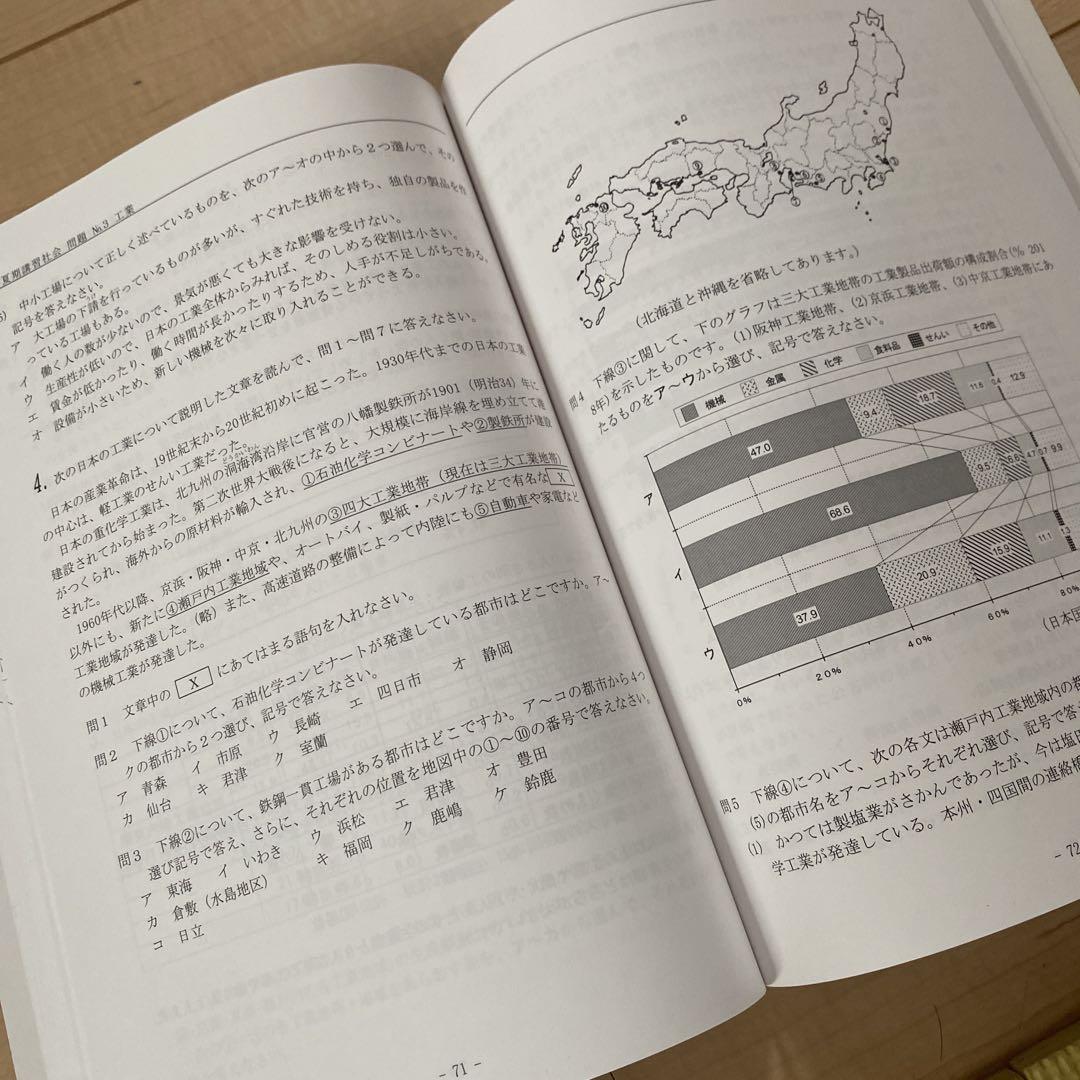 夏期講習社会 問題 №3 工業
中小工場について正しく述べているものを、次のア～オの中から2つ選んで、その
記号を答えなさい。
ア 大工場の下請を行っているものが多いが、すぐれた技術を持ち、独自の製品を作
っている工場もある。
イ 働く人の数が少ないので、景気が悪くても大きな影響を受けない。
ウ 生産性が低いので、日本の工業全体からみれば、そのしめる役割は小さい。
エ 賃金が低かったり、働く時間が長かったりするため、人手が不足しがちである。
オ 設備が小さいため、新しい機械を次々に取り入れることができる。
4. 次の日本の工業について説明した文章を読んで、問1～問7に答えなさい。
日本の産業革命は、19世紀末から20世紀初めに起こった。1930年代までの日本の工業
の中心は、軽工業のせんい工業だった。
日本の重化学工業は、北九州の洞海湾沿岸に官営の八幡製鉄所が1901（明治34）年に
建設されてから始まった。第二次世界大戦後になると、大規模に海岸線を埋め立てて港
がつくられ、海外からの原材料が輸入され、①石油化学コンビナートや②製鉄所が建設
された。
1960年代以降、京浜・阪神・中京・北九州の③四大工業地帯（現在は三大工業地帯）
以外にも、新たに④瀬戸内工業地域や、オートバイ、製紙・パルプなどで有名な X
工業地域が発達した。（略）また、高速道路の整備によって内陸にも⑤自動車や家電など
の機械工業が発達した。
問1 文章中の X にあてはまる語句を入れなさい。
問2 下線①について、石油化学コンビナートが発達している都市はどこですか。ア～
クの都市から2つ選び、記号で答えなさい。
ア 青森 イ 市原 ウ 長崎 エ 四日市 オ 静岡
カ 仙台 キ 君津 ク 室蘭
問3 下線②について、鉄鋼一貫工場がある都市はどこですか。ア～コの都市から4つ
選び記号で答え、さらに、それぞれの位置を地図中の①～⑩の番号で答えなさい。
ア 東海 イ いわき ウ 浜松 エ 君津 オ 豊田
カ 倉敷（水島地区） キ 福岡 ク 鹿嶋 ケ 鈴鹿
コ 日立
- 71 -
（北海道と沖縄を省略してあります。）
問4 下線③に関して、下のグラフは三大工業地帯の工業製品出荷額の構成割合（% 201
8年）を示したものです。(1)阪神工業地帯、(2)京浜工業地帯、(3)中京工業地帯にあ
たるものをア～ウから選び、記号で答えなさい。
機械 金属 化学 食料品 せんい その他
ア 47.0 9.4 18.7 11.6 0.4 12.9
イ 68.6 9.5 6.6 4.7 0.7 9.9
ウ 37.9 20.9 15.9 11.1 1.3
0% 20% 40% 60% 80%
（日本国
問5 下線④について、次の各文は瀬戸内工業地域内の都
(5)の都市名をア～コからそれぞれ選び、記号で答
(1) かつては製塩業がさかんであったが、今は塩田
学工業が発達している。本州・四国間の連絡橋
- 72